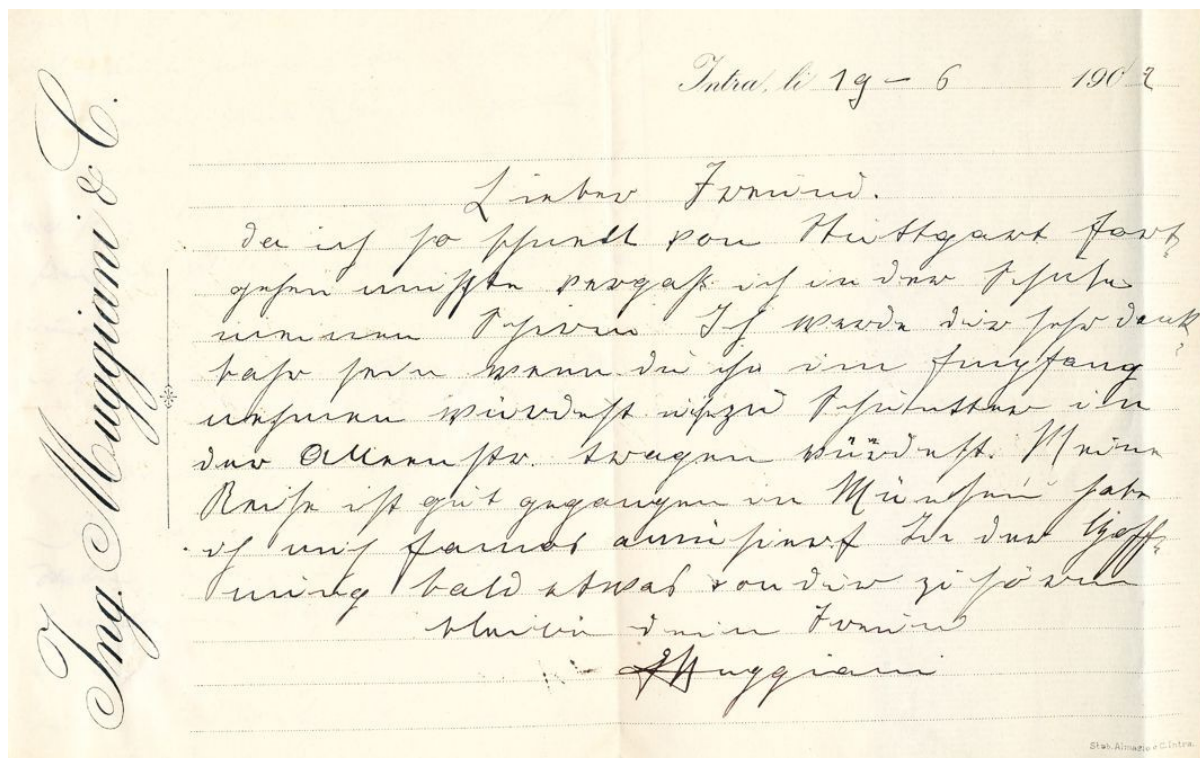 Ing. Muggiani & C.
Intra, li 19 – 6 1902
Lieber Freund.
da ich so schnell von Stuttgart fort
gehen musste vergaß ich in der Schule
meinen Schirm Ich werde dir sehr dank
bahr sein wenn du ihn im Empfang
nehmen würdest zu in
der Alleenstr. tragen würdest. Meine
Reise ist gut gegangen in München habe
ich mich famos amüsiert In der Hoff-
nung bald etwas von dir zu hören
bleibe dein Freund
Muggiani
Stab. Almasio e C. Intra.